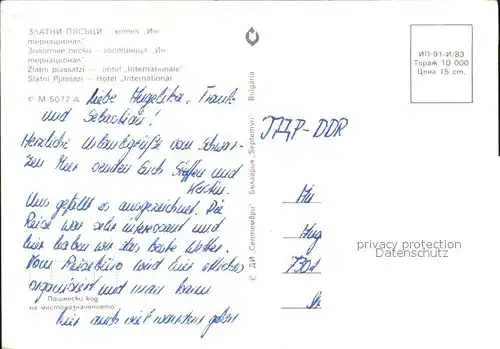 ЗЛАТНИ ПЯСЪЦИ — хотел „Ин-
тернационал"
Золотые пески — гостиница „Ин-
тернационал"
Zlatni piassatzi — hôtel „Internationale"
Slatni Pjassazi — Hotel „International
© М 5077 А
Liebe Angelika, Frank
und Sebastian!
Herzliche Urlaubsgrüße vom Schwar-
zen Meer senden Euch Steffen und
Kerstin.
Uns gefällt es ausgezeichnet. Die
Reise war sehr interessant und
hier haben wir das beste Wetter.
Vom Reisebüro wird hier etliches
organisiert und man kann
hier auch viel
Пощенски код
на местоназначението
© ДИ „Септември" България „Septemvri" Bulgaria
ИП-91-И/83
Тираж 10 000
Цена 15 cm.
ГДР-DDR
privacy protection
Datenschutz
7301